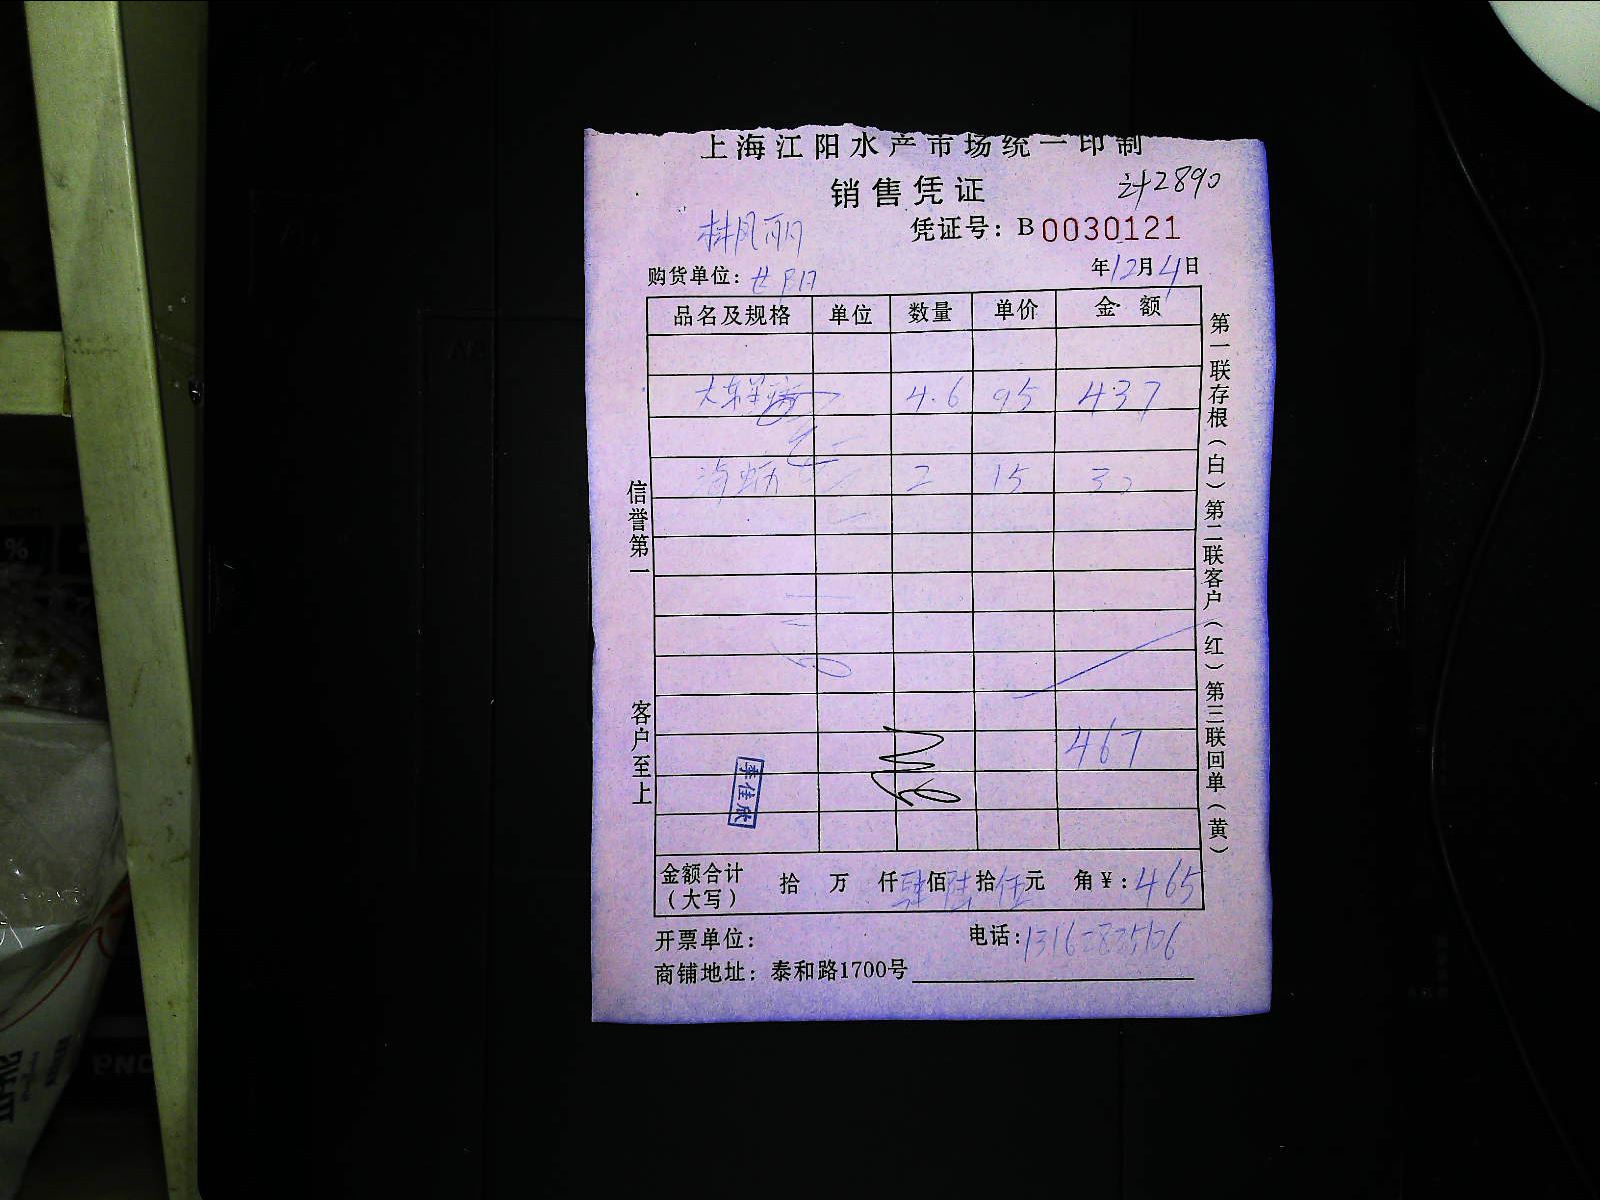 上海江阳水产市场统一印制
销售凭证
计2890
林凤丽
凭证号：B 0030121
购货单位：
年12月4日
品名及规格 单位 数量 单价 金额
大东星斑 4.6 95 437
海蛎 2 15 30
467
李佳欣
金额合计（大写） 拾 万 仟肆佰陆拾伍元 角￥：465
开票单位：
电话：
商铺地址：泰和路1700号
信誉第一
客户至上
第一联存根（白）第二联客户（红）第三联回单（黄）
%